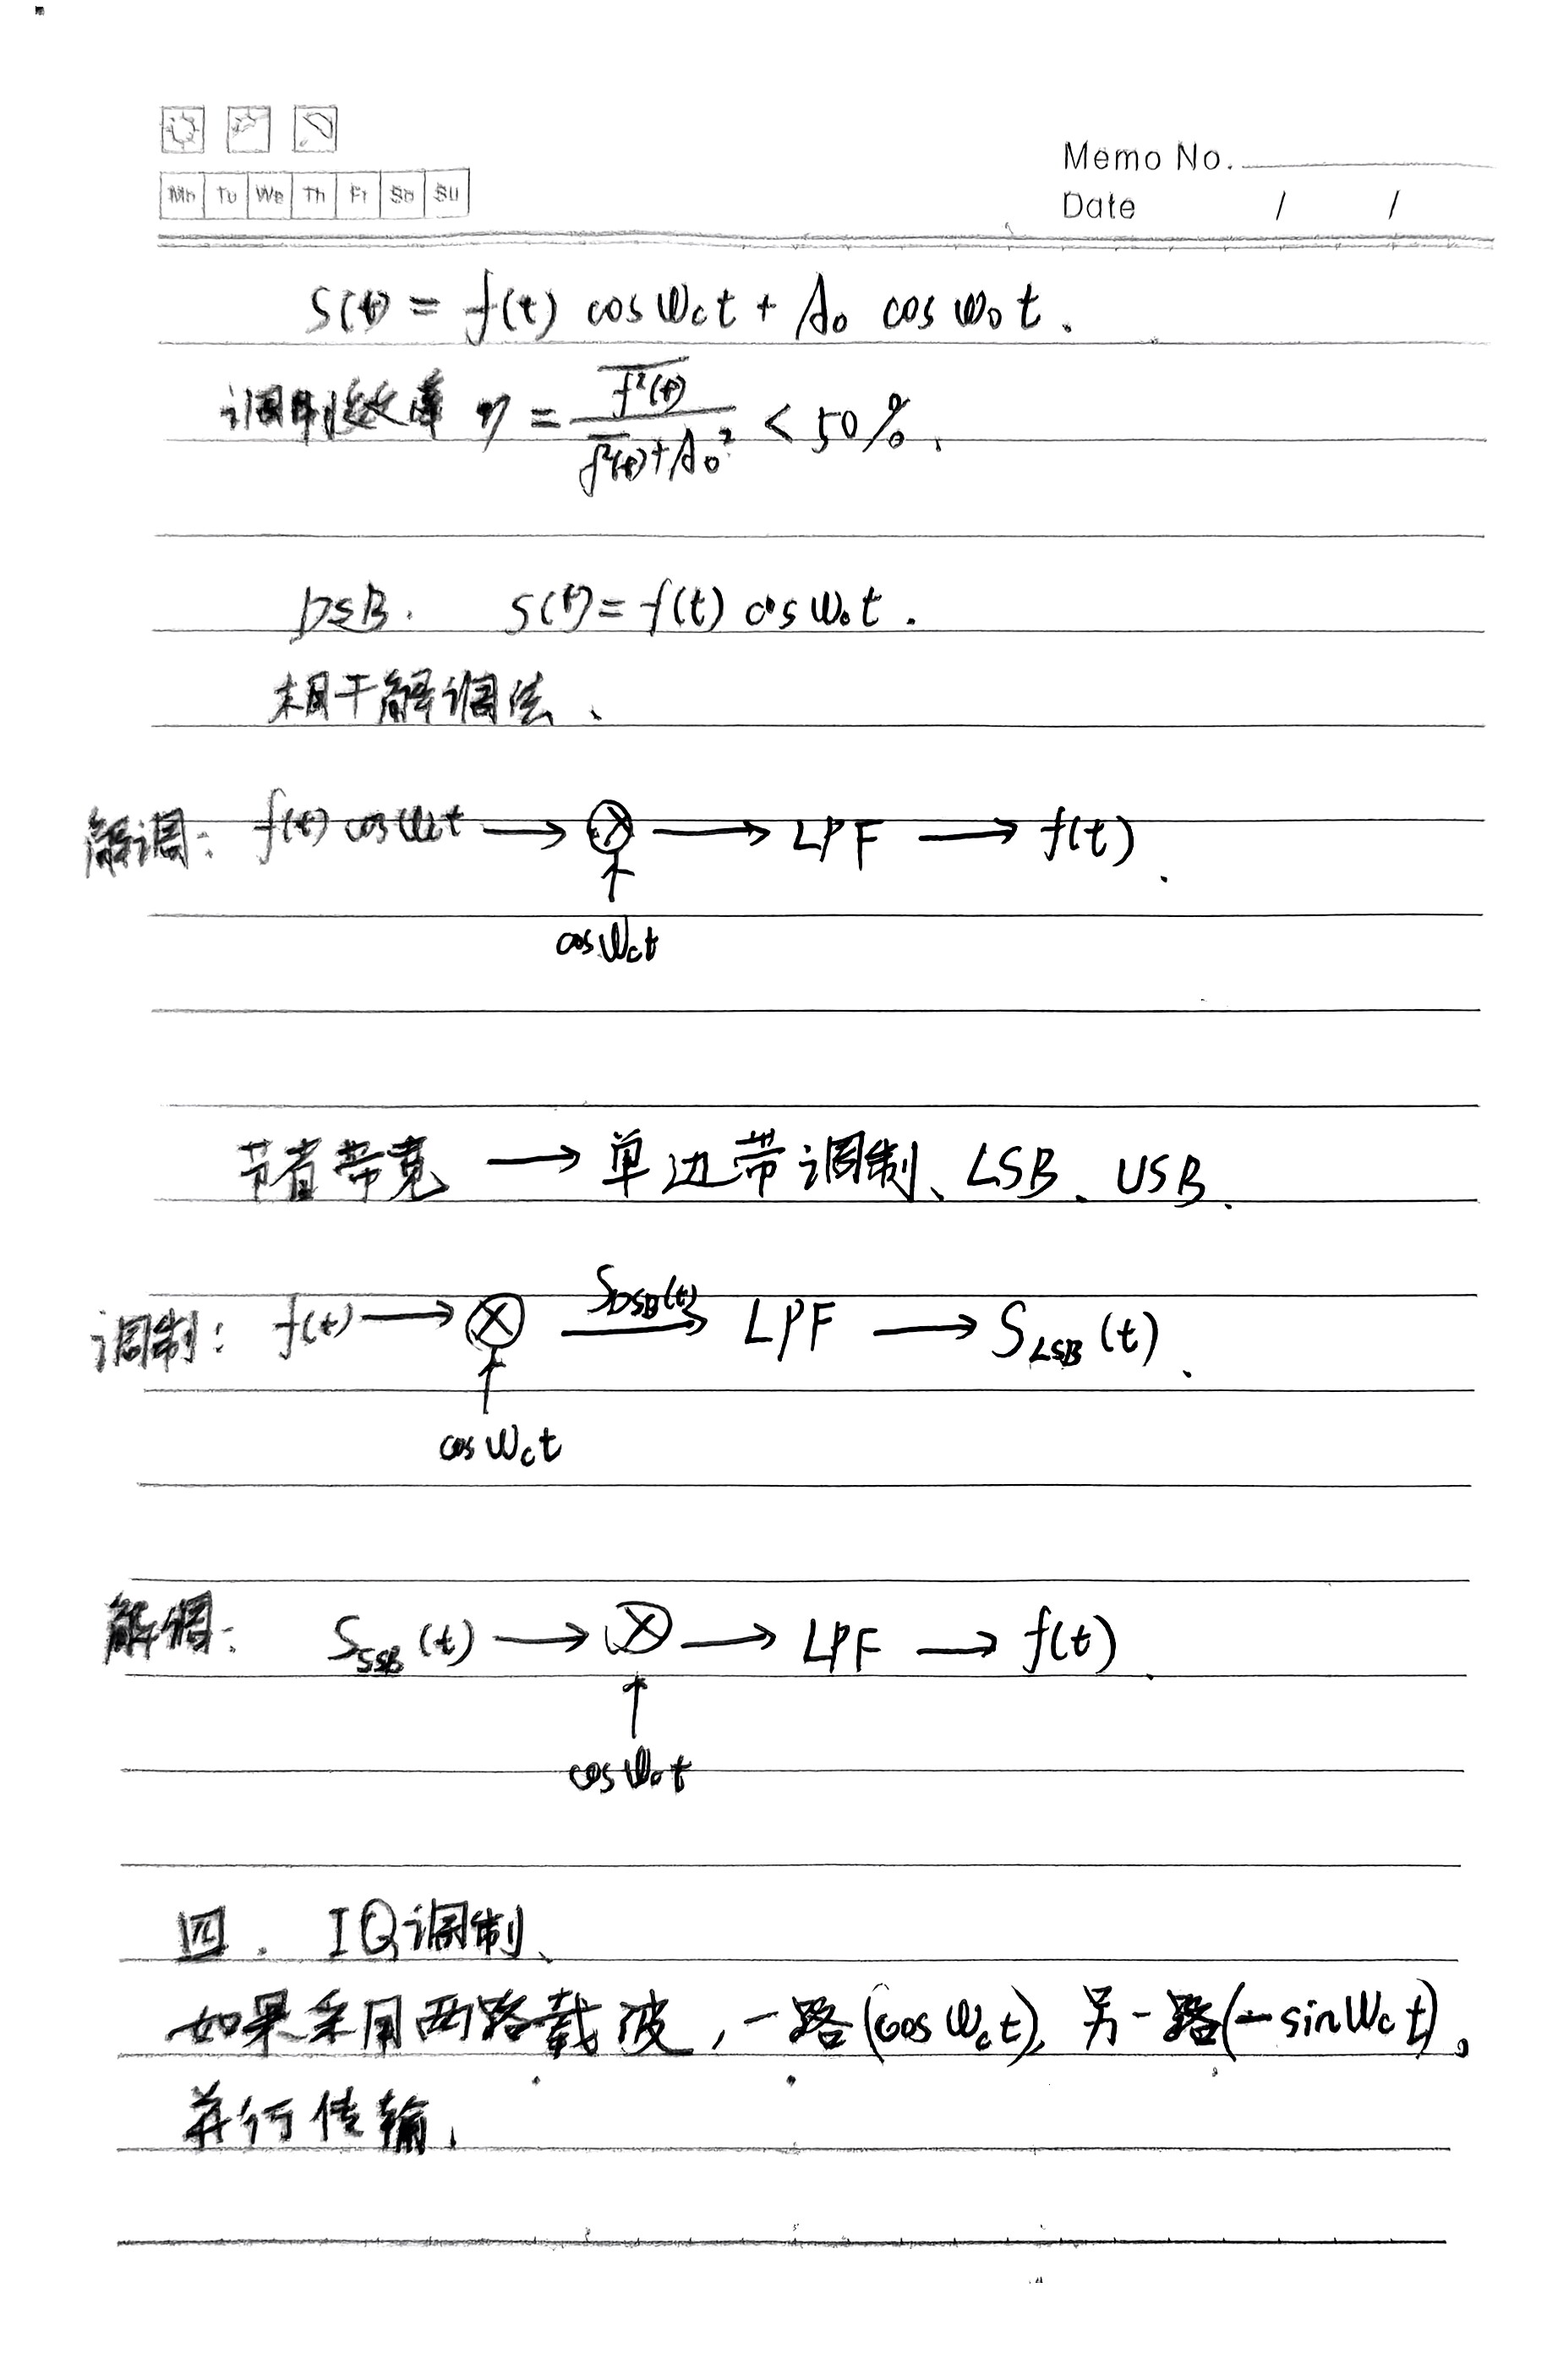 Memo No.
Mo Tu We Th Fr Sa Su
Date / /
S(t) = f(t) cos ωct + A₀ cos ω₀t.
调制效率 η = f²(t) / f²(t)+A₀² < 50%.
DSB. S(t) = f(t) cos ω₀t.
相干解调法、
解调: f(t) cos ωct → ⊗ → LPF → f(t).
↑
cos ωct
节省带宽 → 单边带调制、LSB、USB.
SDSB(t)
调制: f(t) → ⊗ → LPF → SLSB(t).
↑
cos ωct
解调: SSSB(t) → ⊗ → LPF → f(t).
↑
cos ω₀t
四. IQ调制、
如果采用两路载波,一路(cos ωct),另一路(-sin ωct)。
并行传输.